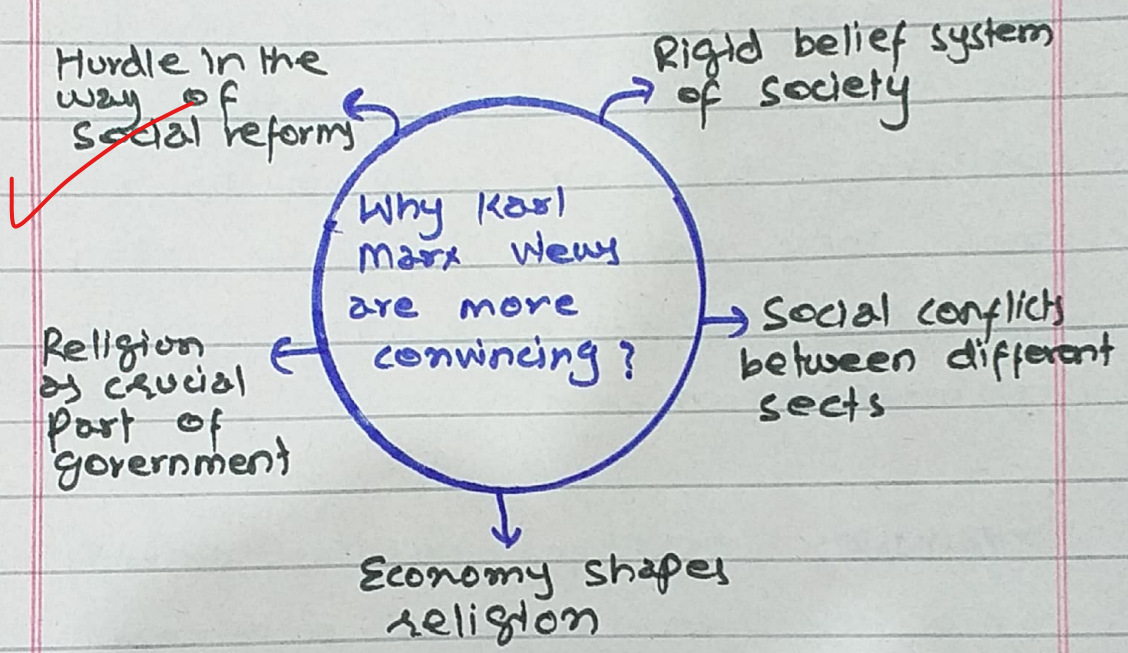 Hurdle in the
way of
social reforms
Rigid belief system
of society
Why Karl
Marx views
are more
convincing?
Social conflicts
between different
sects
Religion
as crucial
part of
government
Economy shapes
religion